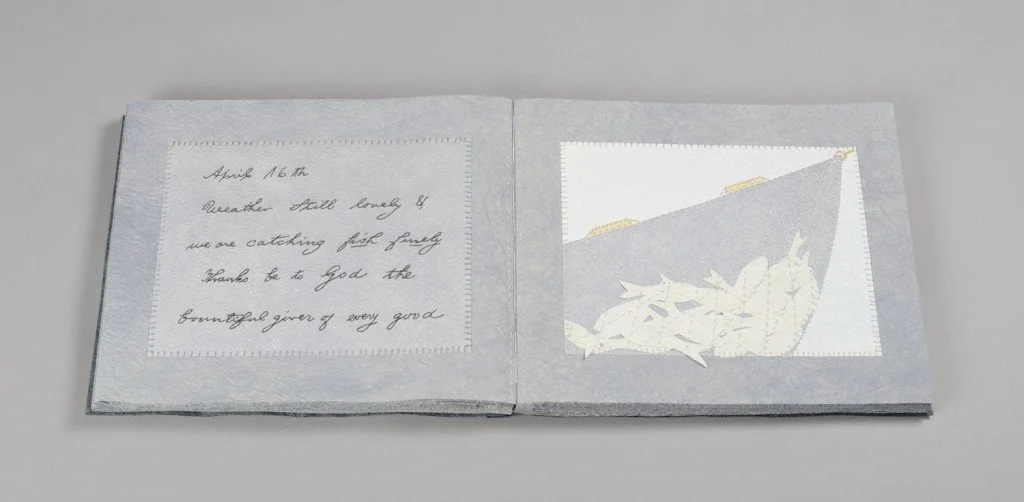 April 16th
Weather Still lovely &
we are catching fish finely
Thanks be to God the
bountiful giver of every good